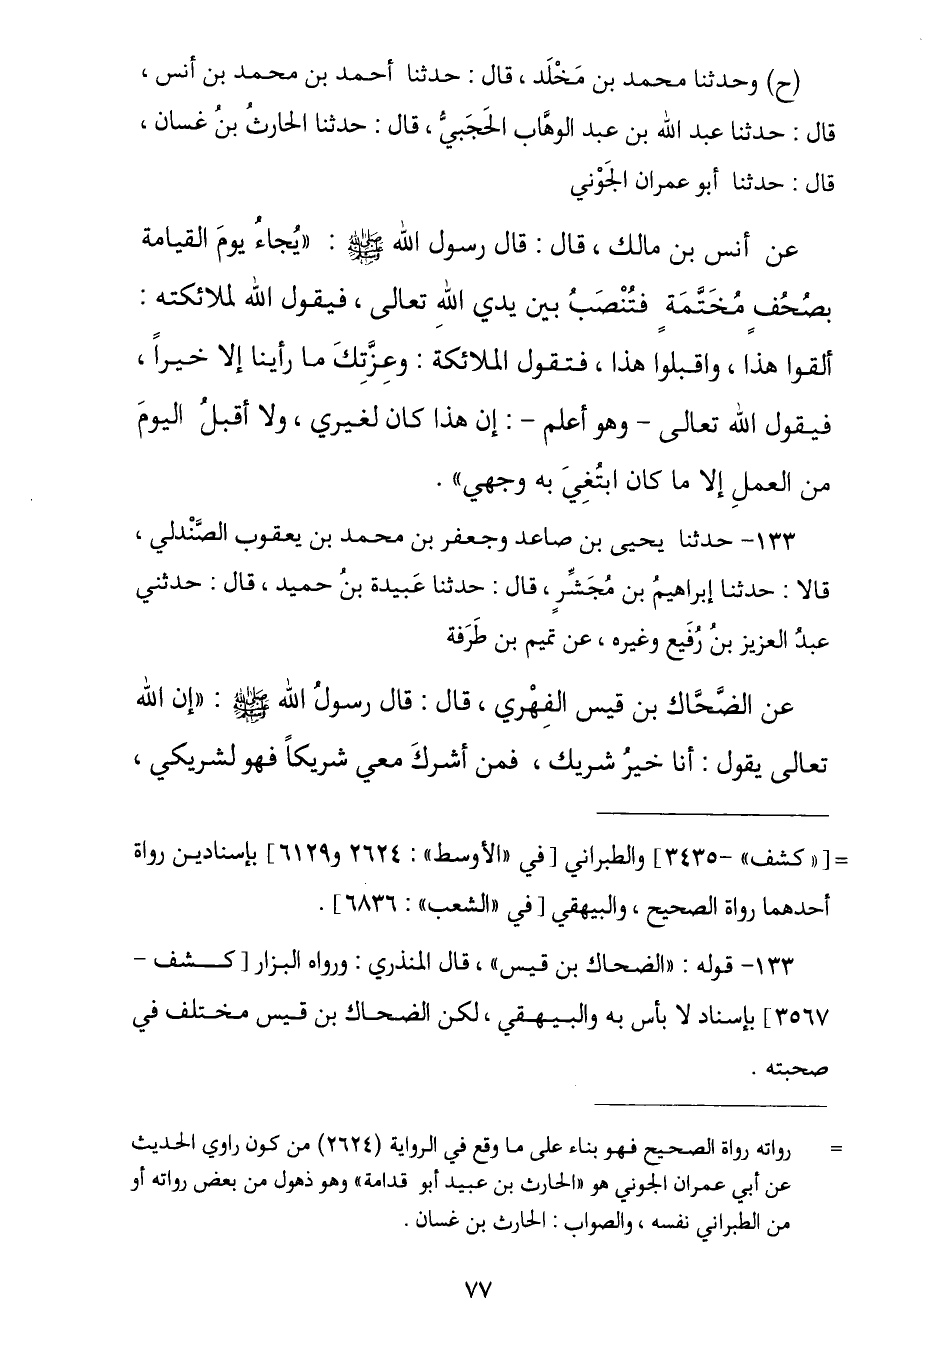 (ح) وحدثنا محمد بن مَخْلَد ، قال : حدثنا أحمد بن محمد بن أنس ،
قال : حدثنا عبد الله بن عبد الوهَّاب الحَجَبيُّ ، قال : حدثنا الحارثُ بنُ غسان ،
قال : حدثنا أبو عمران الجَوْني
عن أنس بن مالك ، قال : قال رسول الله ﷺ : «يُجاءُ يومَ القيامة
بصُحُفٍ مُخَتَّمَةٍ فتُنْصَبُ بين يدي اللهِ تعالى ، فيقول الله لملائكته :
ألقوا هذا ، واقبلوا هذا ، فتقول الملائكة : وعِزَّتِكَ ما رأينا إلا خيراً ،
فيقول الله تعالى - وهو أعلم - : إن هذا كان لغيري ، ولا أقبلُ اليومَ
من العملِ إلا ما كان ابتُغيَ به وجهي» .
١٣٣- حدثنا يحيى بن صاعد وجعفر بن محمد بن يعقوب الصَّنْدلي ،
قالا : حدثنا إبراهيمُ بن مُجَشِّرٍ ، قال : حدثنا عَبيدة بنُ حميد ، قال : حدثني
عبدُ العزيز بنُ رُفَيع وغيره ، عن تميم بن طَرَفة
عن الضَّحَّاك بن قيس الفِهْري ، قال : قال رسولُ الله ﷺ : «إن الله
تعالى يقول : أنا خيرُ شريك ، فمن أشركَ معي شريكاً فهو لشريكي ،
=[«كشف» -٣٤٣٥] والطبراني [في «الأوسط» : ٢٦٢٤ و٦١٢٩] بإسنادين رواة
أحدهما رواة الصحيح ، والبيهقي [في «الشعب» : ٦٨٣٦] .
١٣٣- قوله : «الضحاك بن قيس» ، قال المنذري : ورواه البزار [كشف -
٣٥٦٧] بإسناد لا بأس به والبيهقي ، لكن الضحاك بن قيس مختلف في
صحبته .
= رواته رواة الصحيح فهو بناء على ما وقع في الرواية (٢٦٢٤) من كون راوي الحديث
عن أبي عمران الجوني هو «الحارث بن عبيد أبو قدامة» وهو ذهول من بعض رواته أو
من الطبراني نفسه ، والصواب : الحارث بن غسان .
٧٧